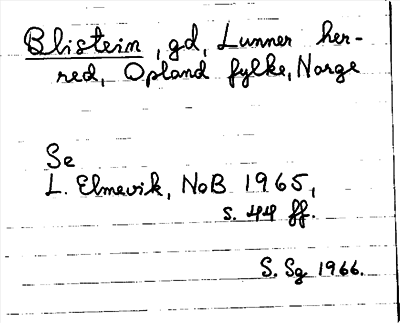 Blistein, gd, Lunner her-
red, Opland fylke, Norge
Se
L. Elmevik, NoB 1965,
s. 44 ff.
S. Sg 1966.